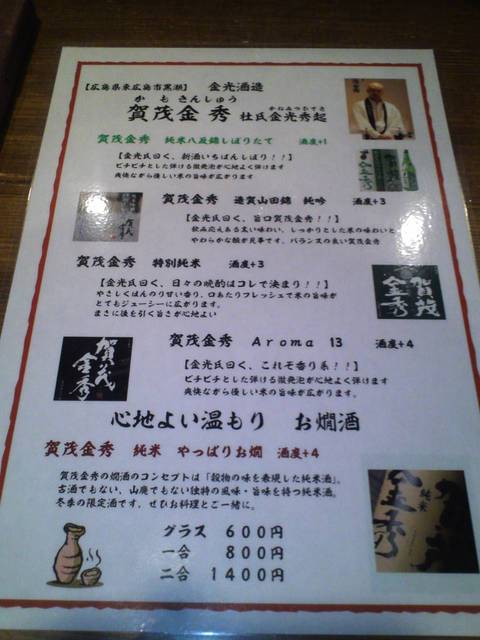 【広島県東広島市黒瀬】 金光酒造
か も きんしゅう
賀茂金秀 杜氏金光秀起
かねみつひでき
賀茂金秀 純米八反錦しぼりたて 酒度+1
【金光氏曰く、新酒いちばんしぼり!!】
ピチピチとした弾ける微発泡が心地よく弾けます
爽快ながら優しい米の旨味が広がります
賀茂金秀 造賀山田錦 純吟 酒度+3
【金光氏曰く、旨口賀茂金秀!!】
飲み応えある太い味わい、しっかりとした米の味わいと
やわらかな酸が見事です、バランスの良い賀茂金秀
賀茂金秀 特別純米 酒度+3
【金光氏曰く、日々の晩酌はコレで決まり!!】
やさしくほんのり甘い香り、口あたりフレッシュで米の旨味が
とてもジューシーに広がります。
まさに後を引く旨さが心地よい
賀茂金秀
賀茂金秀 Aroma 13 酒度+4
【金光氏曰く、これぞ香り系!!】
ピチピチとした弾ける微発泡が心地よく弾けます
爽快ながら優しい米の旨味が広がります。
賀茂金秀
心地よい温もり お燗酒
賀茂金秀 純米 やっぱりお燗 酒度+4
賀茂金秀の燗酒のコンセプトは「穀物の味を表現した純米酒」。
古酒でもない、山廃でもない独特の風味・旨味を持つ純米酒。
冬季の限定酒です、ぜひお料理とご一緒に。
純米
金秀
グラス 600円
一合 800円
二合 1400円